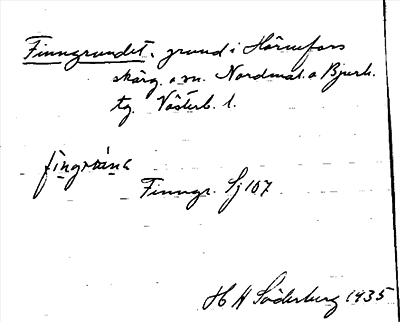 Finngrundet, grund i Hörnefors
skärg. o. m. Nordmal. o Bjurh.
tg. Västerb. l.
fìngrànne
Finngr. Sj 107
H H Söderberg 1935